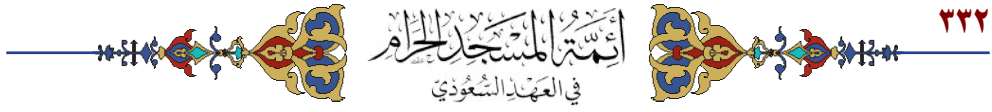 ٣٣٢
أَئِمَّةُ المَسْجِدِ الحَرَامِ
في العَهْدِ السُّعُودِيّ